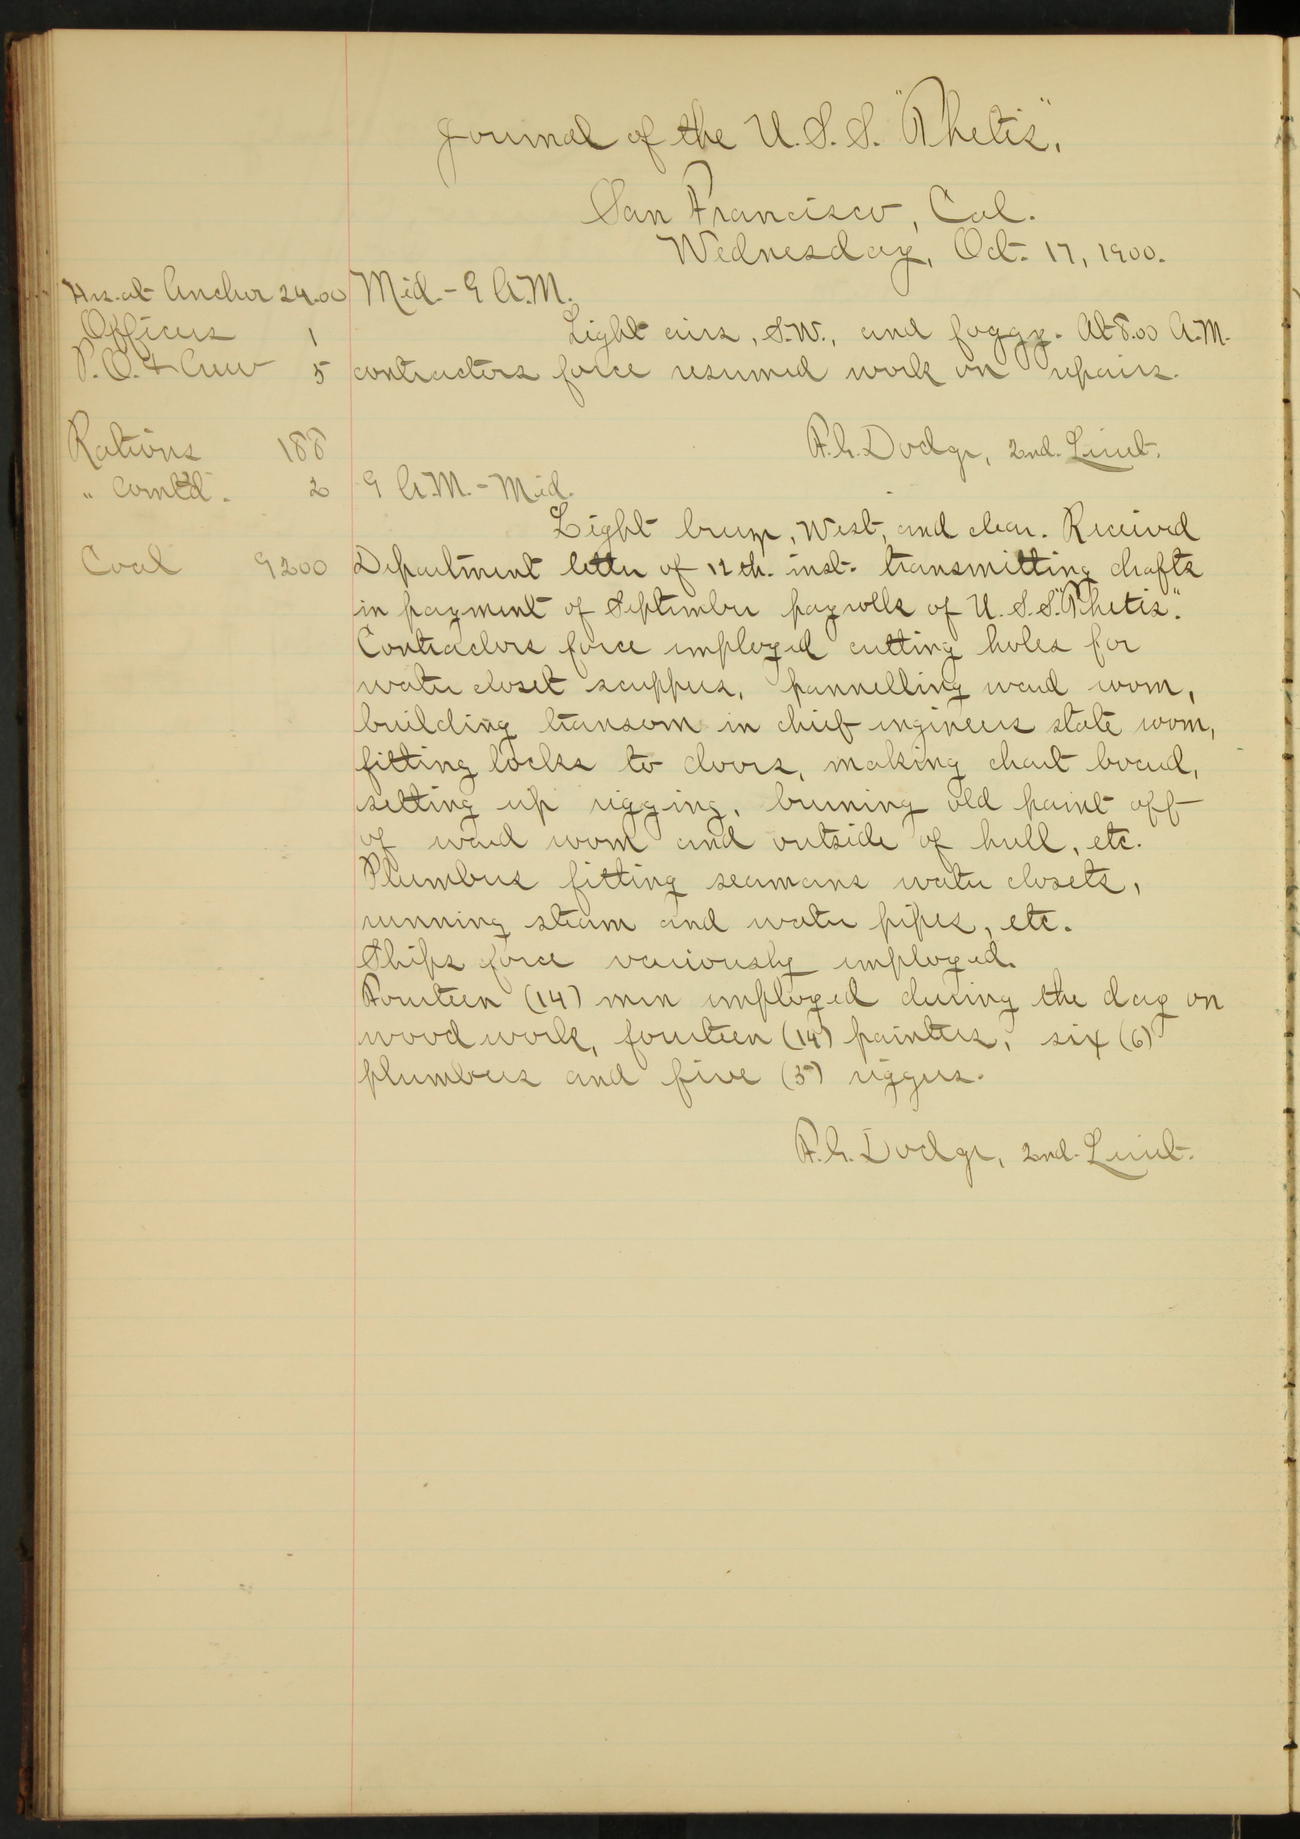 Journal of the U.S.S. "Thetis",
San Francisco, Cal.
Wednesday, Oct. 17, 1900.
Hrs. at Anchor 24.00
Officers 1
P.O. & Crew 5
Rations 188
" Com'td. 2
Coal 9200
Mid. - 9 A.M.
Light airs, S.W., and foggy. At 8.00 A.M.
contractors force resumed work on repairs.
F.G. Dodge, 2nd. Lieut.
9 A.M. - Mid.
Light breeze, West, and clear. Received
Department letter of 12th. inst. transmitting drafts
in payment of September payrolls of U.S.S. "Thetis".
Contractors force employed cutting holes for
water closet scuppers, pannelling ward room,
building transom in chief engineers state room,
fitting locks to doors, making chart board,
setting up rigging, burning old paint off
of ward room and outside of hull, etc.
Plumbers fitting seamans water closets,
running steam and water pipes, etc.
Ships force variously employed.
Fourteen (14) men employed during the day on
wood work, fourteen (14) painters, six (6)
plumbers and five (5) riggers.
F.G. Dodge, 2nd. Lieut.